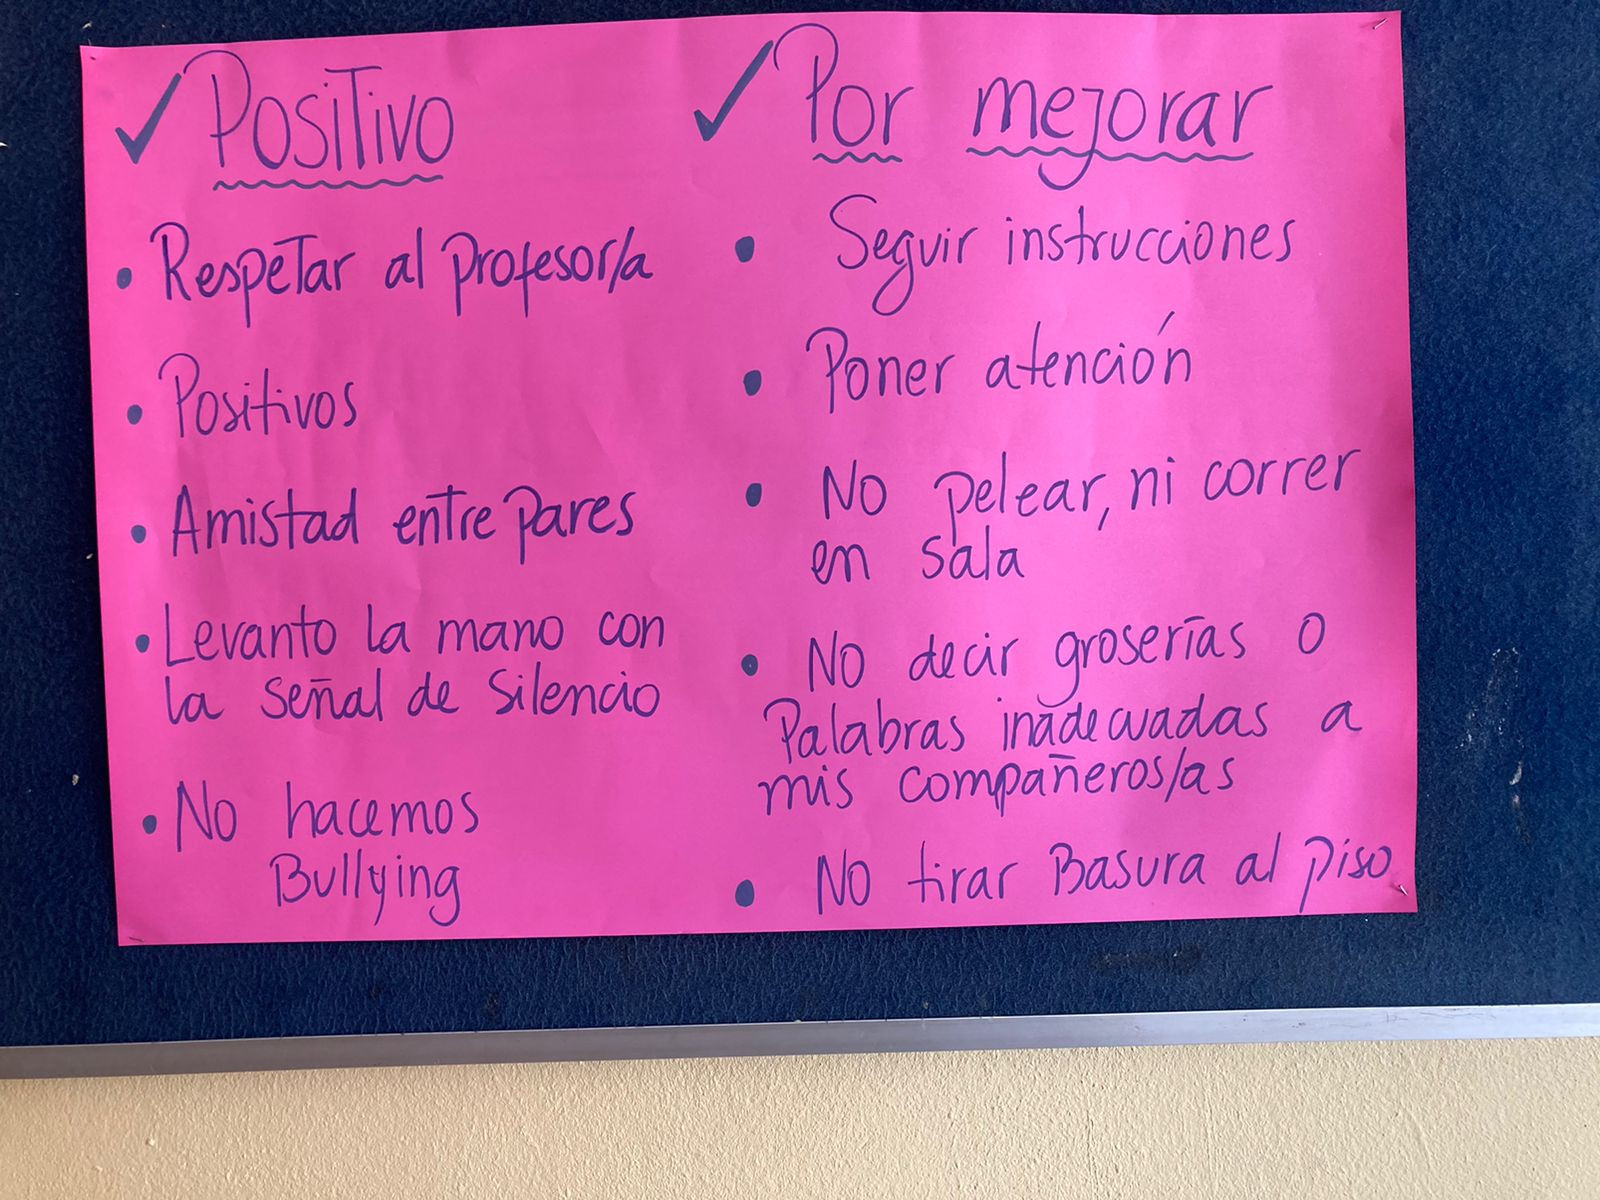 ✓ Positivo
• Respetar al profesor/a
• Positivos
• Amistad entre pares
• Levanto la mano con
la señal de silencio
• No hacemos
Bullying
✓ Por mejorar
• Seguir instrucciones
• Poner atención
• No pelear, ni correr
en sala
• No decir groserías o
Palabras inadecuadas a
mis compañeros/as
• No tirar Basura al piso